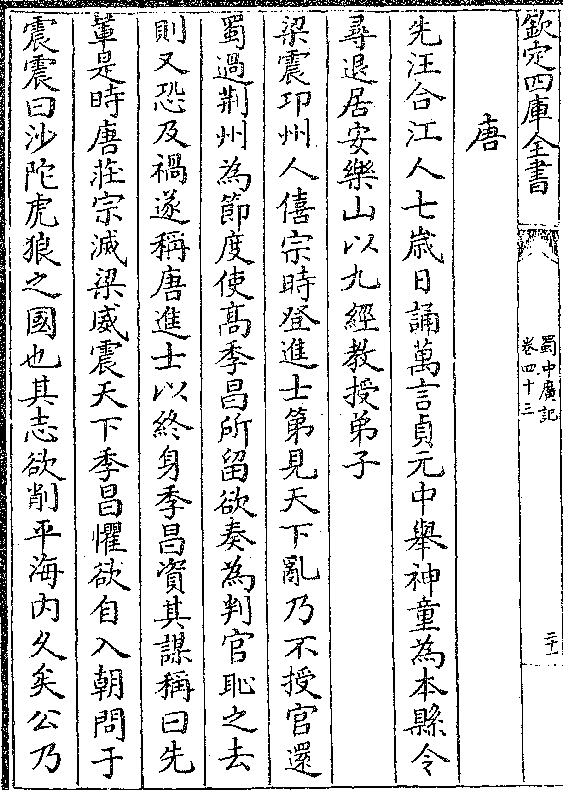 欽定四庫全書
蜀中廣記
卷四十三
二十一
唐
先汪合江人七歲日誦萬言貞元中舉神童為本縣令
尋退居安樂山以九經教授弟子
梁震邛州人僖宗時登進士第見天下亂乃不授官還
蜀過荆州為節度使髙季昌所留欲奏為判官恥之去
則又恐及禍遂稱唐進士以終身季昌資其謀稱曰先
軰是時唐莊宗滅梁威震天下季昌懼欲自入朝問于
震震曰沙陀虎狼之國也其志欲削平海内久矣公乃